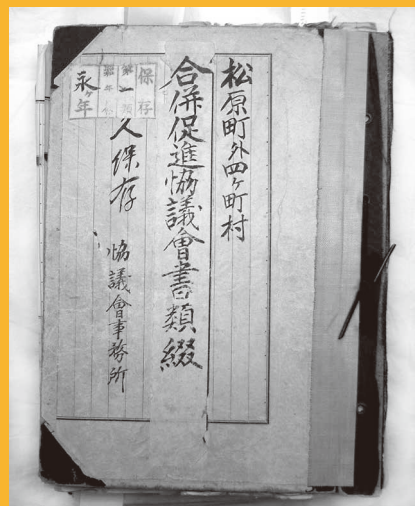 松原町外四ヶ町村
合併促進協議會書類綴
保存
第一類
永年
久保存
協議會事務所